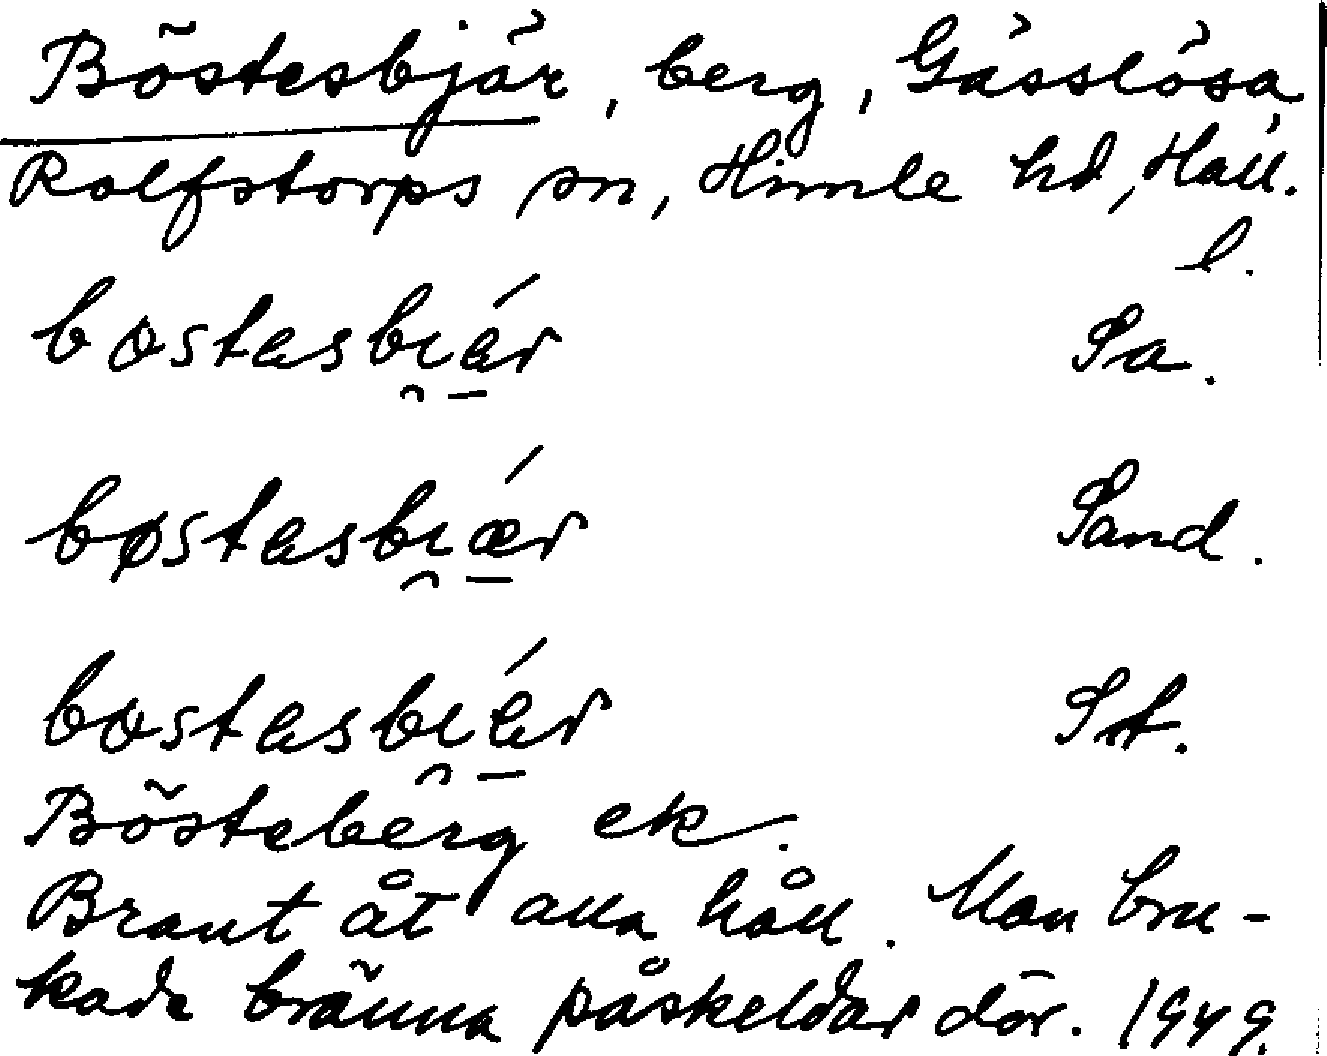 Böstesbjär, berg, Gässlösa,
Rolfstorps sn, Himle hd, Hall.
l.
bostasbɩ̯ér Sa.
bøstasbɩ̯ǽr Sand.
bostasbɩ̯ér St.
Bösteberg ek.
Brant åt alla håll. Man bru-
kade bränna påskeldar där. 1949.